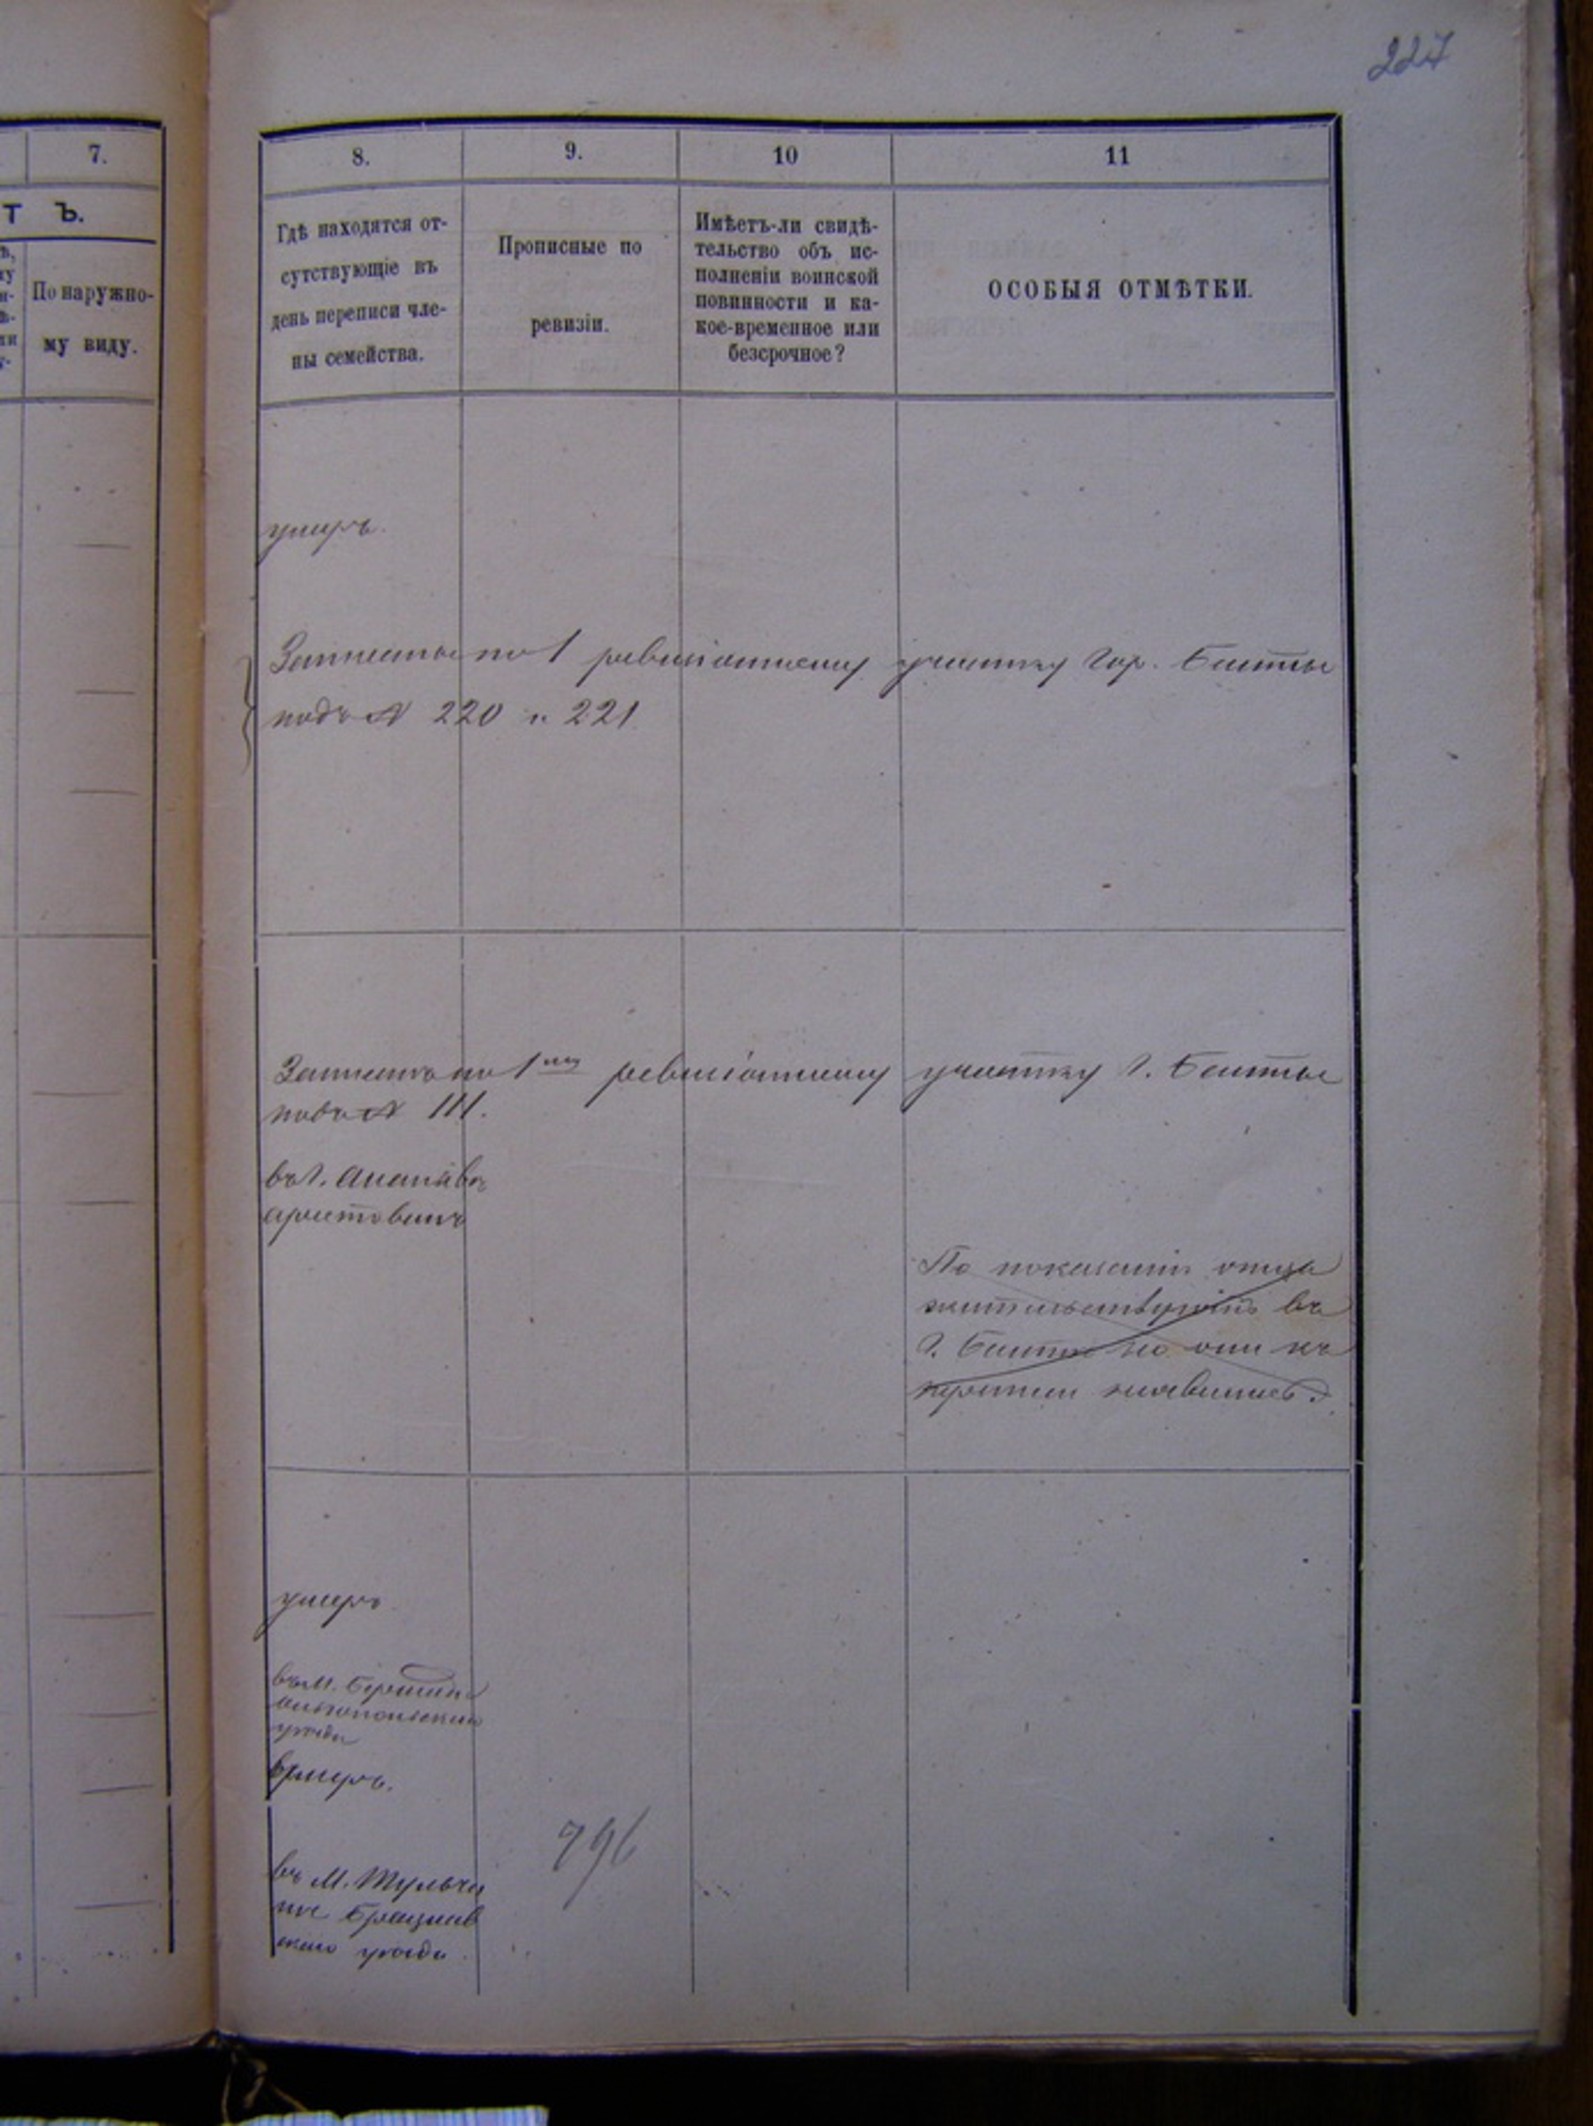 227
7.
Т Ъ.
По наружно-
му виду.
8.
9.
10
11
Гдѣ находятся от-
сутствующіе въ
день переписи чле-
ны семейства.
Прописные по
ревизіи.
Имѣетъ-ли свидѣ-
тельство объ ис-
полненіи воинской
повинности и ка-
кое-временное или
безсрочное?
ОСОБЫЯ ОТМѢТКИ.
умеръ.
Записаны по 1 ревизіонному участку Гор. Балты
подъ № 220 и 221
Записанъ по 1му ревизіонному участку г. Балты
подъ № 111.
въ г. Ананьевѣ
арестованъ
По показанію отца
жительствуютъ въ
г. Балтѣ но они къ
переписи неявились.
умеръ
въ М. Бершади
Ольгопольскаго
уѣзда
умеръ.
796
въ М. Тульчи
нѣ Брацлав
скаго уѣзда